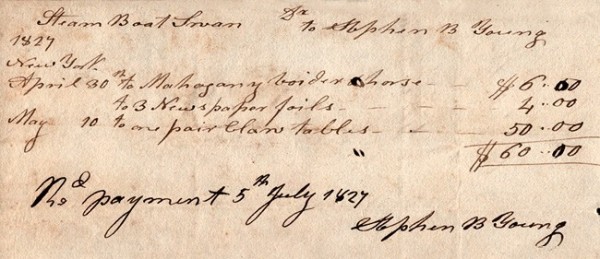 Steam Boat Swan Dr to Stephen B Young
1827
New York
April 30th to Mahogany boider & horse $6.00
to 3 News paper foils 4.00
May 10 to one pair Claw tables 50.00
$60.00
Recd payment 5th July 1827
Stephen B Young